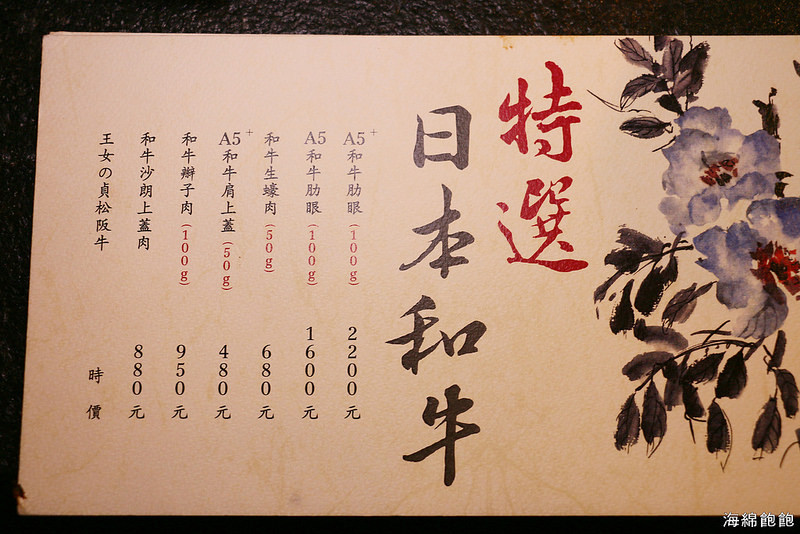 特選
日本和牛
A5+和牛肋眼(100g) 2200元
A5和牛肋眼(100g) 1600元
和牛生蠔肉(50g) 680元
A5+和牛肩上蓋(50g) 480元
和牛辮子肉(100g) 950元
和牛沙朗上蓋肉 880元
王女の貞松阪牛 時價
海綿飽飽